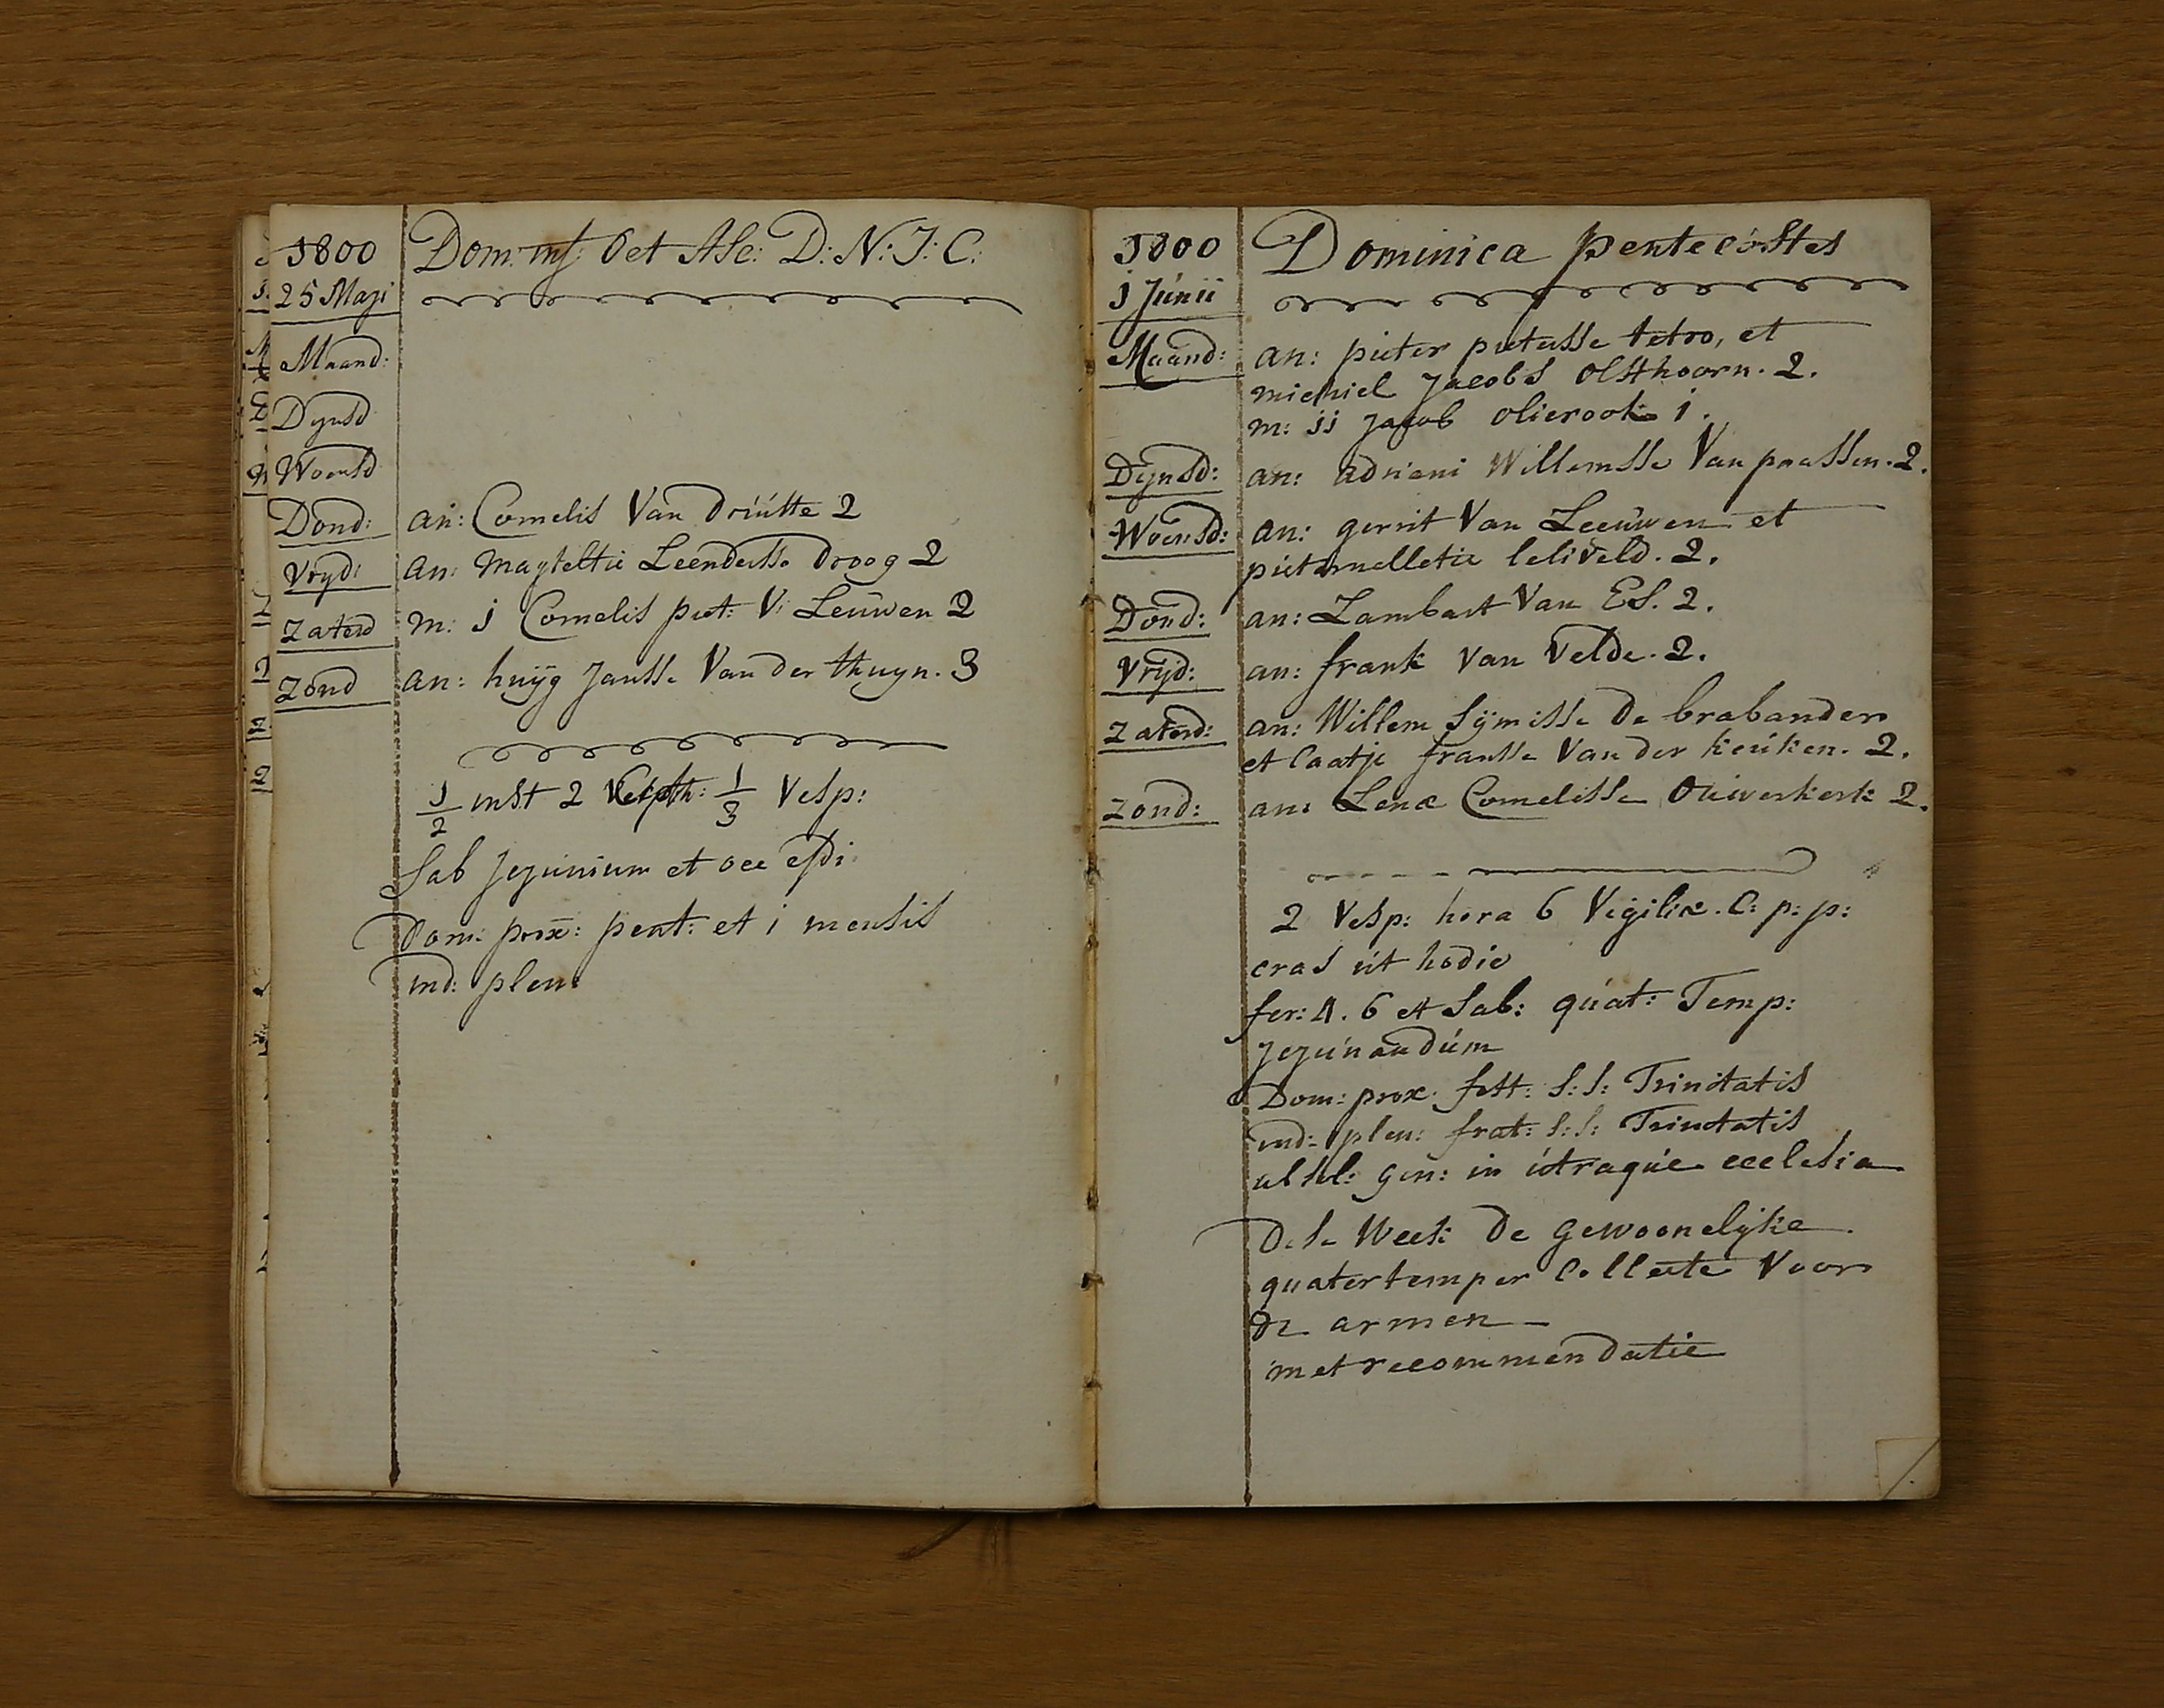 1800 Dom: inf: Oct Asc: D: N: J: C:
25 Maji
Maand:
Dynsd
Woensd
Dond: an: Cornelis Van druitte 2
Vryd: an: Maghteltie Leendertse droog 2
Zaterd m: 1 Cornelis piet: V: Leuwen 2
Zond an: huÿg Jansse Van der thuyn. 3
1/2 inst 2 1/3 Vesp:
Sab Jejunium et occ
Dom: prox: pent: et i mensis
ind: plen:
1800 Dominica pentecostes
1 Junii
Maand: an: pieter pietersse tetro, et
michiel Jacobs Olsthoorn. 2.
m: 11 Jacob olierook 1.
Dynsd: an: adriani Willemsse Van paassen. 2.
Woensd: an: gerrit Van Leeuwen et
pieternelletie leliveld. 2.
Dond: an: Lambart Van ES. 2.
Vrijd: an: frank Van Velde. 2.
Zaterd: an: Willem Sijmisse de brabander
et Caatje fransse Van der keuken. 2.
Zond: an: Lenæ Cornelisse Ouwerkerk 2.
2 Vesp: hora 6 Vigiliæ. C: p: p:
cras ut hodie
fer: 4. 6 et Sab: quat: Temp:
Jejunandum
Dom: prox fest: S: S: Trinitatis
ind: plen: frat: S: S: Trinitatis
absol: gen: in utraque ecclesia
Dese Week de gewoonelijke
quatertemper Collecte Voor
de armen
met recommendatie